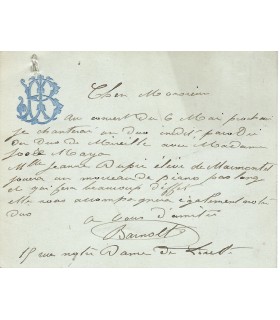 Cher Monsieur
Au concert du 6 Mai prochain
je chanterai un duo inédit parodie
du Duo de Mireille avec Madame
Mlle Jeanne Dupré élève de Marmontel
jouera un morceau de piano pas long
et qui fera beaucoup d'effet
elle nous accompagnera également notre
duo
à vous d'amitié
Barnolt
15 rue notre Dame de Loret.